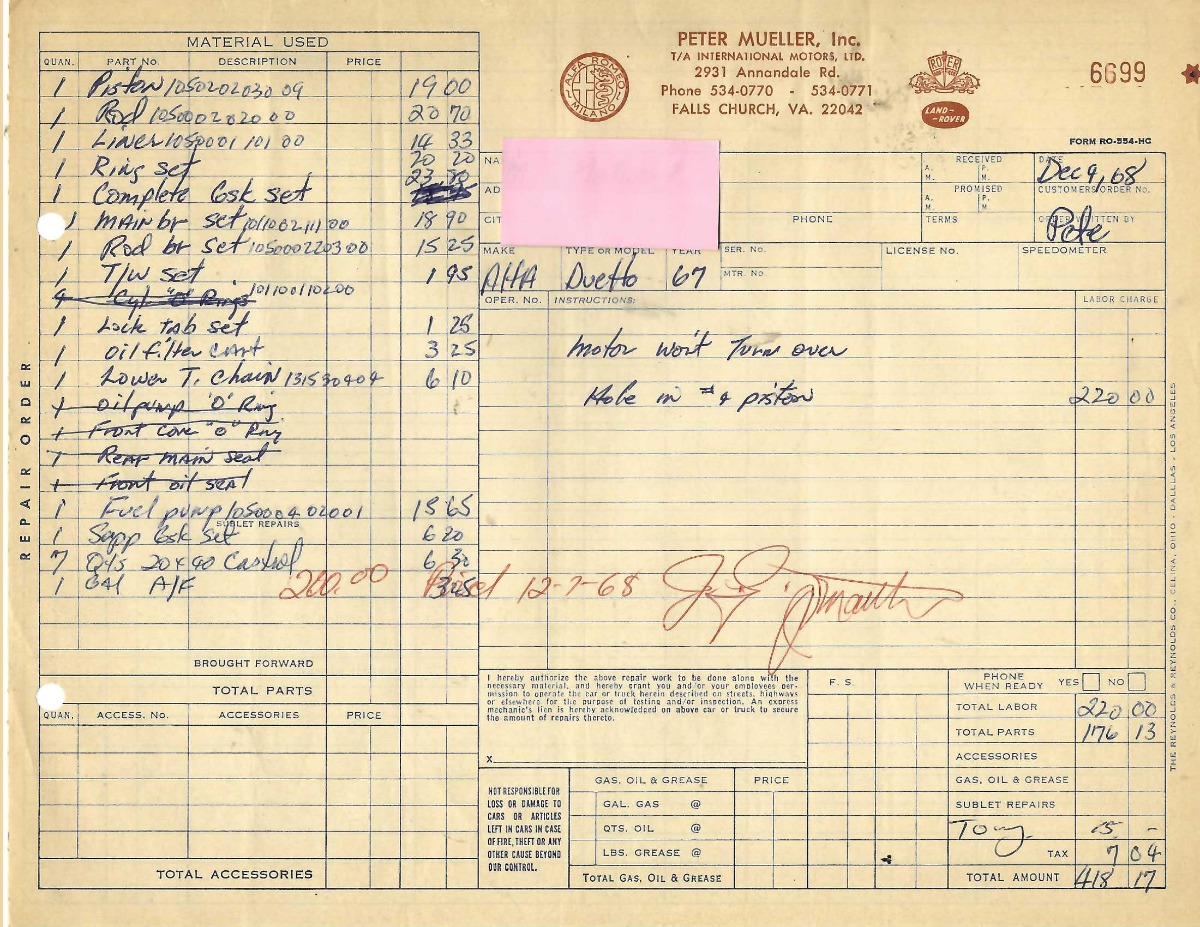 MATERIAL USED
QUAN. PART No. DESCRIPTION PRICE
1 Piston 1050202030 09 19 00
1 Rod 105000202000 20 70
1 Liner 1050001 101 00 14 33
1 Ring set 20 20
1 Complete Gsk set 23.80
1 MAIN br set 18 90
1 Rod br set 105000220300 15 25
1 T/W set 1 95
4 Cyl "O" Rings 101100110200
1 Lock tab set 1 25
1 Oil filter cart 3 25
1 Lower T. Chain 131530404 6 10
1 Oil pump "O" Ring
1 Front cover "O" Ring
1 Rear main seal
1 Front oil seal
1 Fuel pump 15 65
SUBLET REPAIRS
1 Gsk set 6 20
7 Qts 20x40 Castrol 6 30
1 GAL A/F 3 25
BROUGHT FORWARD
TOTAL PARTS
QUAN. ACCESS. No. ACCESSORIES PRICE
TOTAL ACCESSORIES
REPAIR ORDER
ALFA ROMEO
MILANO
PETER MUELLER, Inc.
T/A INTERNATIONAL MOTORS, LTD.
2931 Annandale Rd.
Phone 534-0770 - 534-0771
FALLS CHURCH, VA. 22042
ROVER
LAND-ROVER
6699
FORM RO-554-HC
NA
AD
CIT
PHONE
RECEIVED
A. M. P. M.
PROMISED
A. M. P. M.
TERMS
DATE
Dec 9, 68
CUSTOMERS ORDER No.
ORDER WRITTEN BY
Pete
MAKE TYPE OR MODEL YEAR SER. No. LICENSE No. SPEEDOMETER
Alfa Duetto 67
MTR. No.
OPER. No. INSTRUCTIONS: LABOR CHARGE
Motor won't Turn over
Hole in #4 piston 220 00
200.00 Paid 12-7-68
I hereby authorize the above repair work to be done along with the
necessary material, and hereby grant you and/or your employees per-
mission to operate the car or truck herein described on streets, highways
or elsewhere for the purpose of testing and/or inspection. An express
mechanic's lien is hereby acknowledged on above car or truck to secure
the amount of repairs thereto.
X
F. S.
NOT RESPONSIBLE FOR
LOSS OR DAMAGE TO
CARS OR ARTICLES
LEFT IN CARS IN CASE
OF FIRE, THEFT OR ANY
OTHER CAUSE BEYOND
OUR CONTROL.
GAS, OIL & GREASE PRICE
GAL. GAS @
QTS. OIL @
LBS. GREASE @
TOTAL GAS, OIL & GREASE
PHONE WHEN READY YES NO
TOTAL LABOR 220 00
TOTAL PARTS 176 13
ACCESSORIES
GAS, OIL & GREASE
SUBLET REPAIRS
15 -
TAX 7 04
TOTAL AMOUNT 418 17
THE REYNOLDS & REYNOLDS CO., CELINA, OHIO - DALLAS - LOS ANGELES